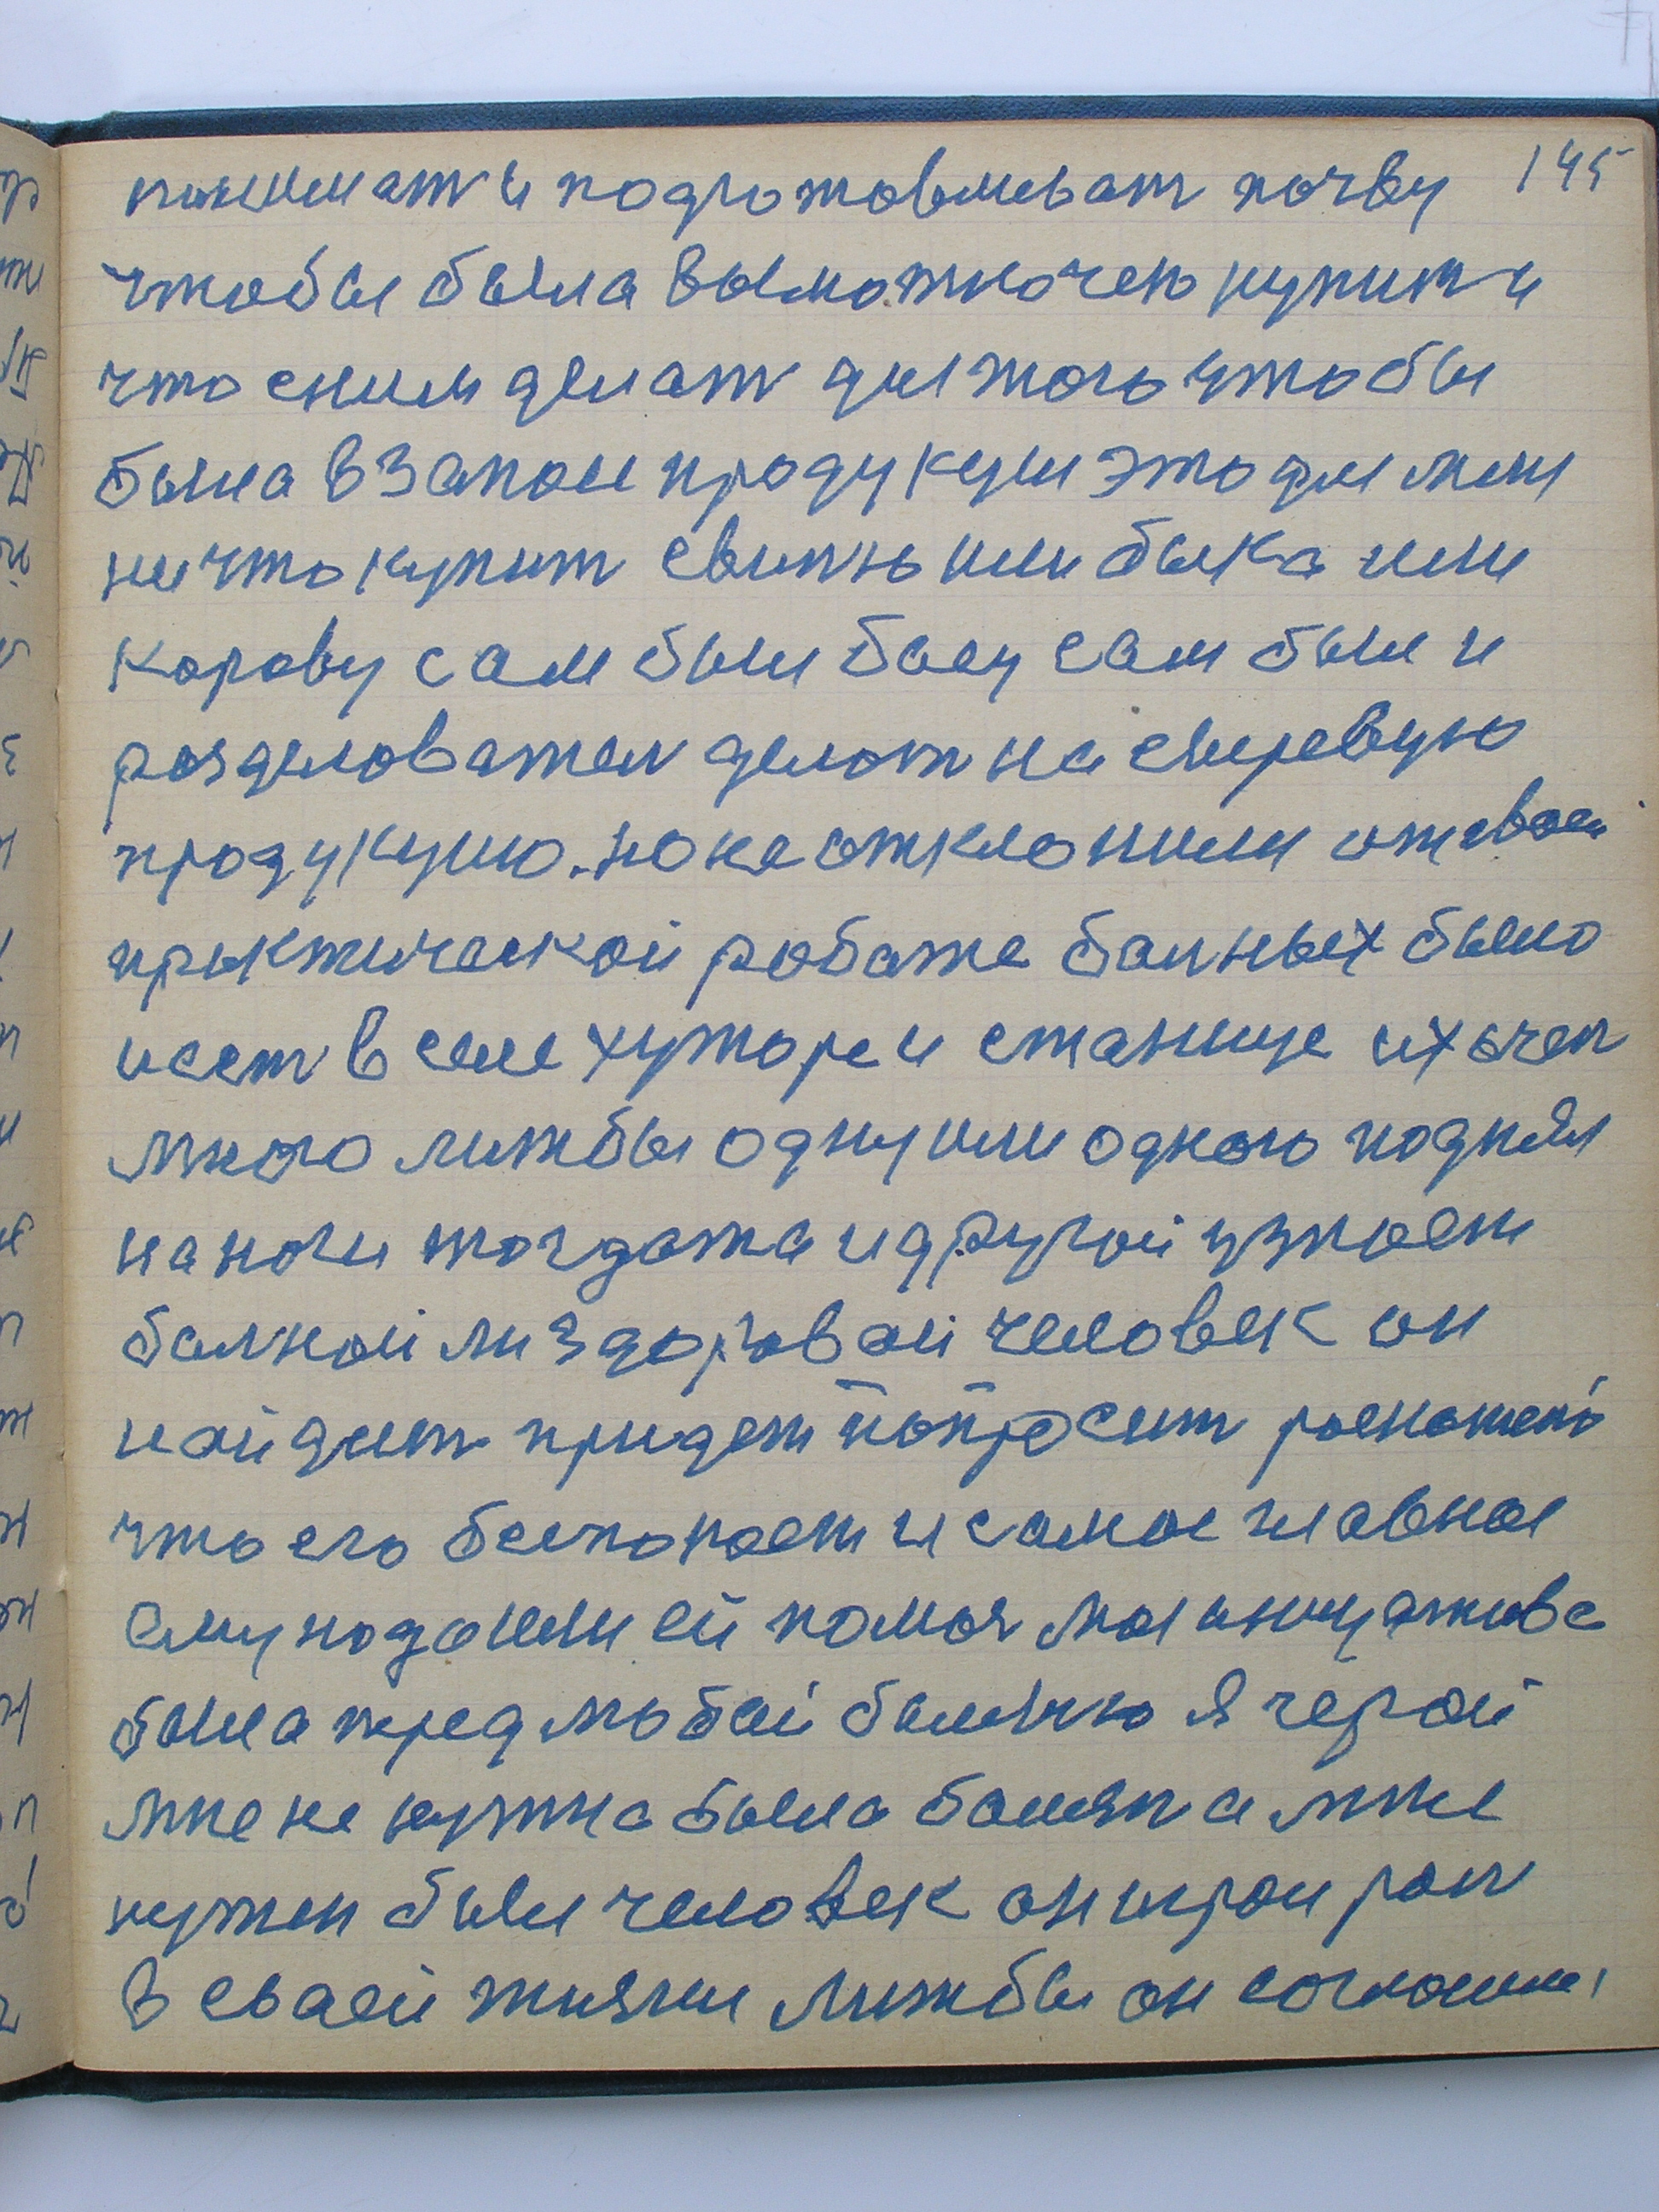 145
понимат и подготовливат почву
чтобы была выможночею купит и
что сним делат для того чтобы
была взапои продукции это для меня
ничто купит свинью или быка или
корову сам был баец сам был и
розделователь делот на сыревую
продукцию. но не отклонили от своеи
практической роботе болных было
иест в селе хуторе и станице их очен
много лижбы одну или одного поднял
на ноги тогдата и другой узноет
болной ли здоровой человек он
найдит придет попросит
что его беспокоет и самое главное
ему подошли ей помоч моя инициатива
была пред мобой
мне не нужна была а мне
нужен был человек он играл рол
в сваей жизни лижбы он